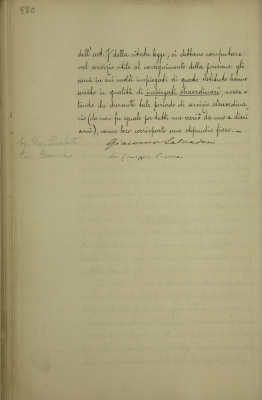 580
dell'art. 7 della citata legge, si debbano computare
nel servizio utile al conseguimento della pensione gli
anni in cui molti impiegati di questo Istituto hanno
servito in qualità di impiegati straordinari, avver-
tendo che durante tale periodo di servizio straordina-
rio (che non fu eguale per tutti ma variò da uno a dieci
anni), venne loro corrisposto uno stipendio fisso. —
Giacomo